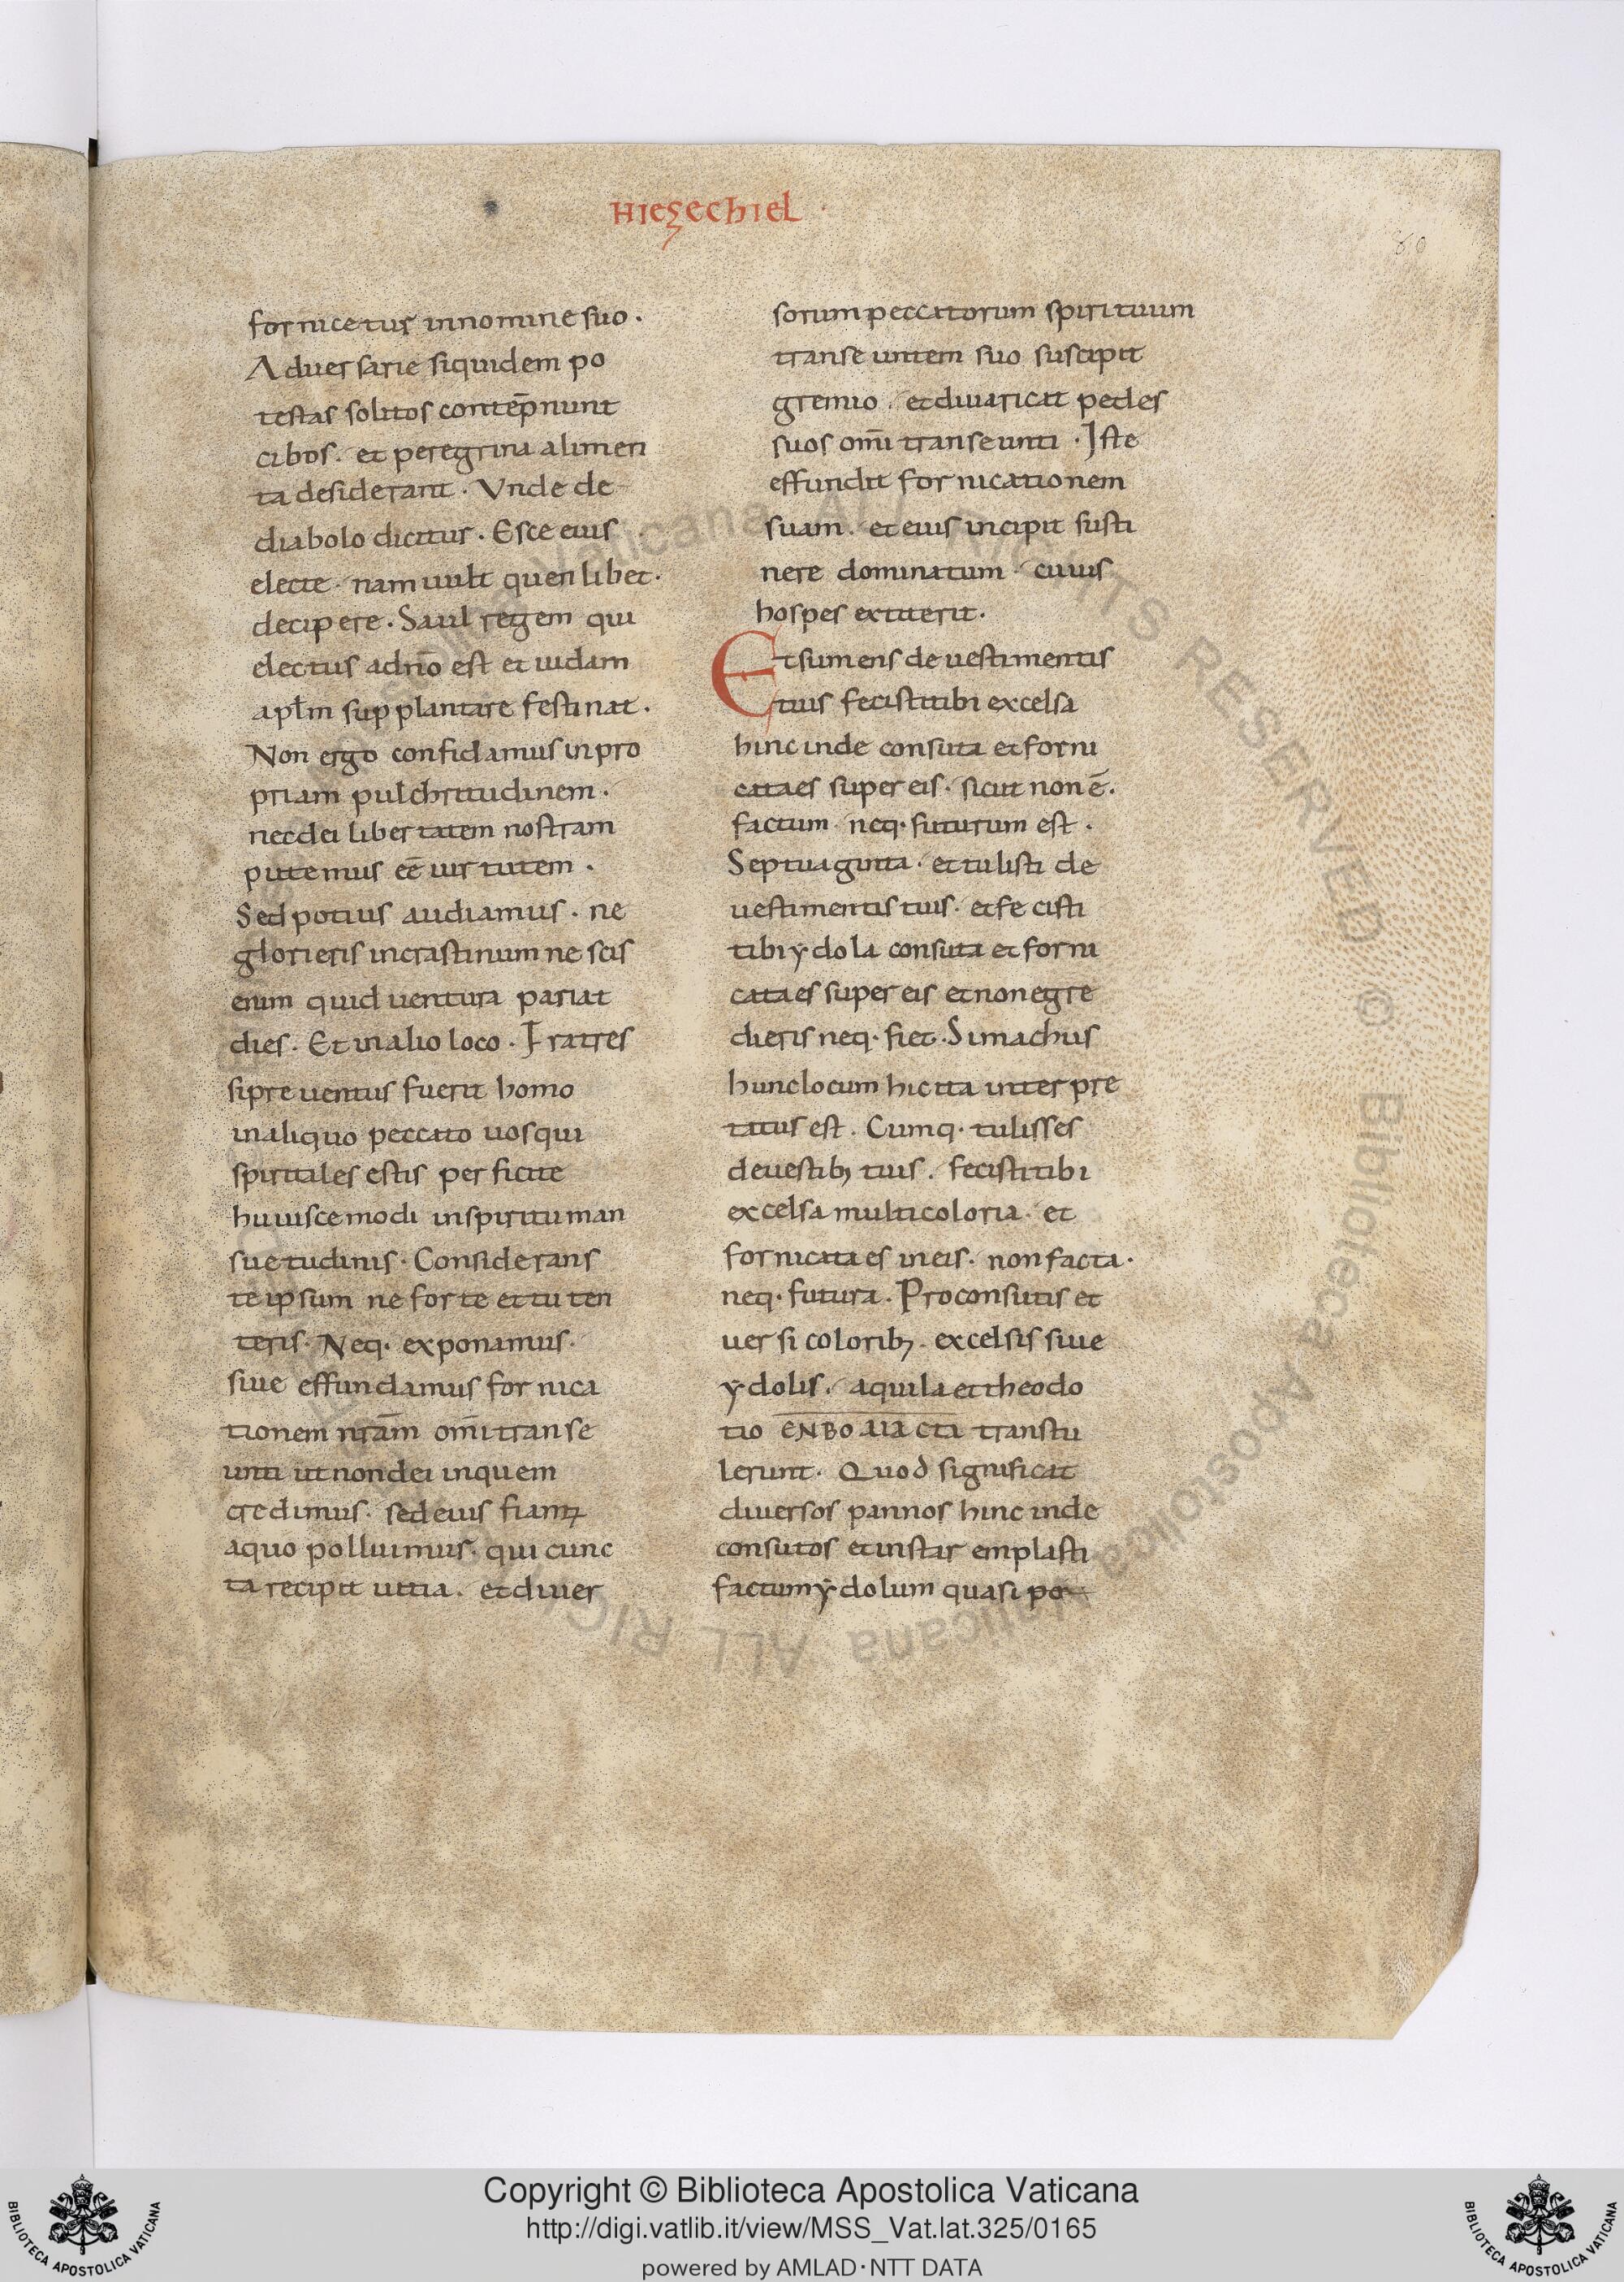 Hiezechiel
80
fornicetur innomine suo.
Aduersarie siquidem po
testas solitos contēpnunt
cibos. et peregrina alimen
ta desiderant. Vnde de
diabolo dicitur. Esce eius
electe. nam uult quenlibet.
decipere. Saul regem qui
electus adn̄o est et iudam
apl̄m supplantare festinat.
Non ergo confidamus inpro
priam pulchritudinem.
necdei libertatem nostram
putemus eē uirtutem.
Sed potius audiamus. ne
glorieris incrastinum nescis
enim quid uentura pariat
dies. Et inalio loco. Fratres
sipreuentus fuerit homo
inaliquo peccato uosqui
spiritales estis perficite
huiuscemodi inspirituman
suetudinis. Considerans
teipsum ne forte ettu ten
teris. Neq. exponamus.
siue effundamus fornica
tionem nrām om̄itranse
unti utnondei inquem
credimus. sedeius fiam;
aquo polluimus. qui cunc
ta recipit uitia. etdiuer
sorumpeccatorum spirituum
transeuntem suo suscipit
gremio. etdiuaricat pedes
suos om̄i transeunti. Iste
effundit fornicationem
suam. et eius incipit susti
nere dominatum. cuius
hospes extiterit.
Etsumens de uestimentis
tuis fecistitibi excelsa
hincinde consuta et forni
cataes super eis. sicut non ē.
factum. neq. futurum est.
Septuaginta. et tulisti de
uestimentis tuis. etfecisti
tibi ydola consuta et forni
cataes super eis etnonegre
dieris neq. fiet. Simachus
hunclocum hicita interpre
tatus est. Cumq. tulisses
deuestib; tuis. fecistitibi
excelsa multicoloria. et
fornicata es ineis. non facta.
neq. futura. Proconsutis et
uersicolorib; excelsis siue
ydolis. aquila ettheodo
tio ENBOMACTI transtu
lerunt. Quod significat
diuersos pannos hinc inde
consutos etinstar emplasti
factumydolum quasi po
Copyright © Biblioteca Apostolica Vaticana
http://digi.vatlib.it/view/MSS_Vat.lat.325/0165
powered by AMLAD·NTT DATA
BIBLIOTECA APOSTOLICA VATICANA
BIBLIOTECA APOSTOLICA VATICANA